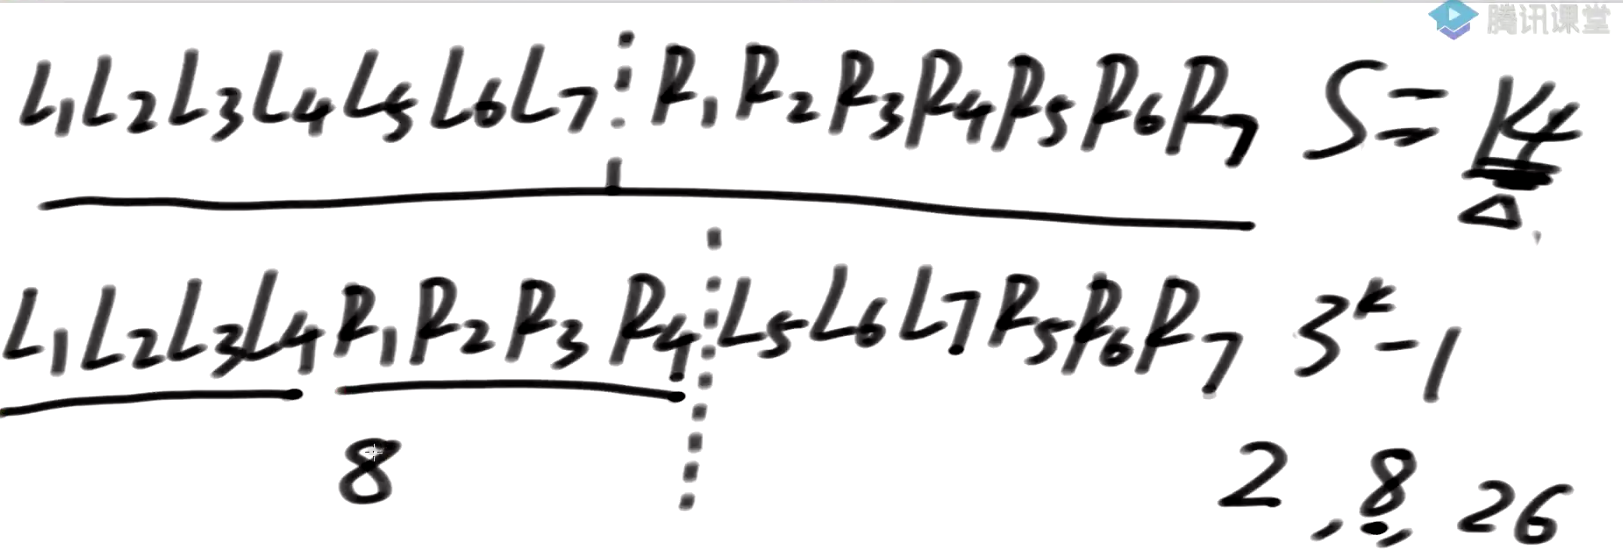 腾讯课堂
L₁L₂L₃L₄L₅L₆L₇ R₁R₂R₃R₄R₅R₆R₇ S=14
L₁L₂L₃L₄R₁R₂R₃R₄ L₅L₆L₇R₅R₆R₇ 3ᵏ-1
8 2,8,26